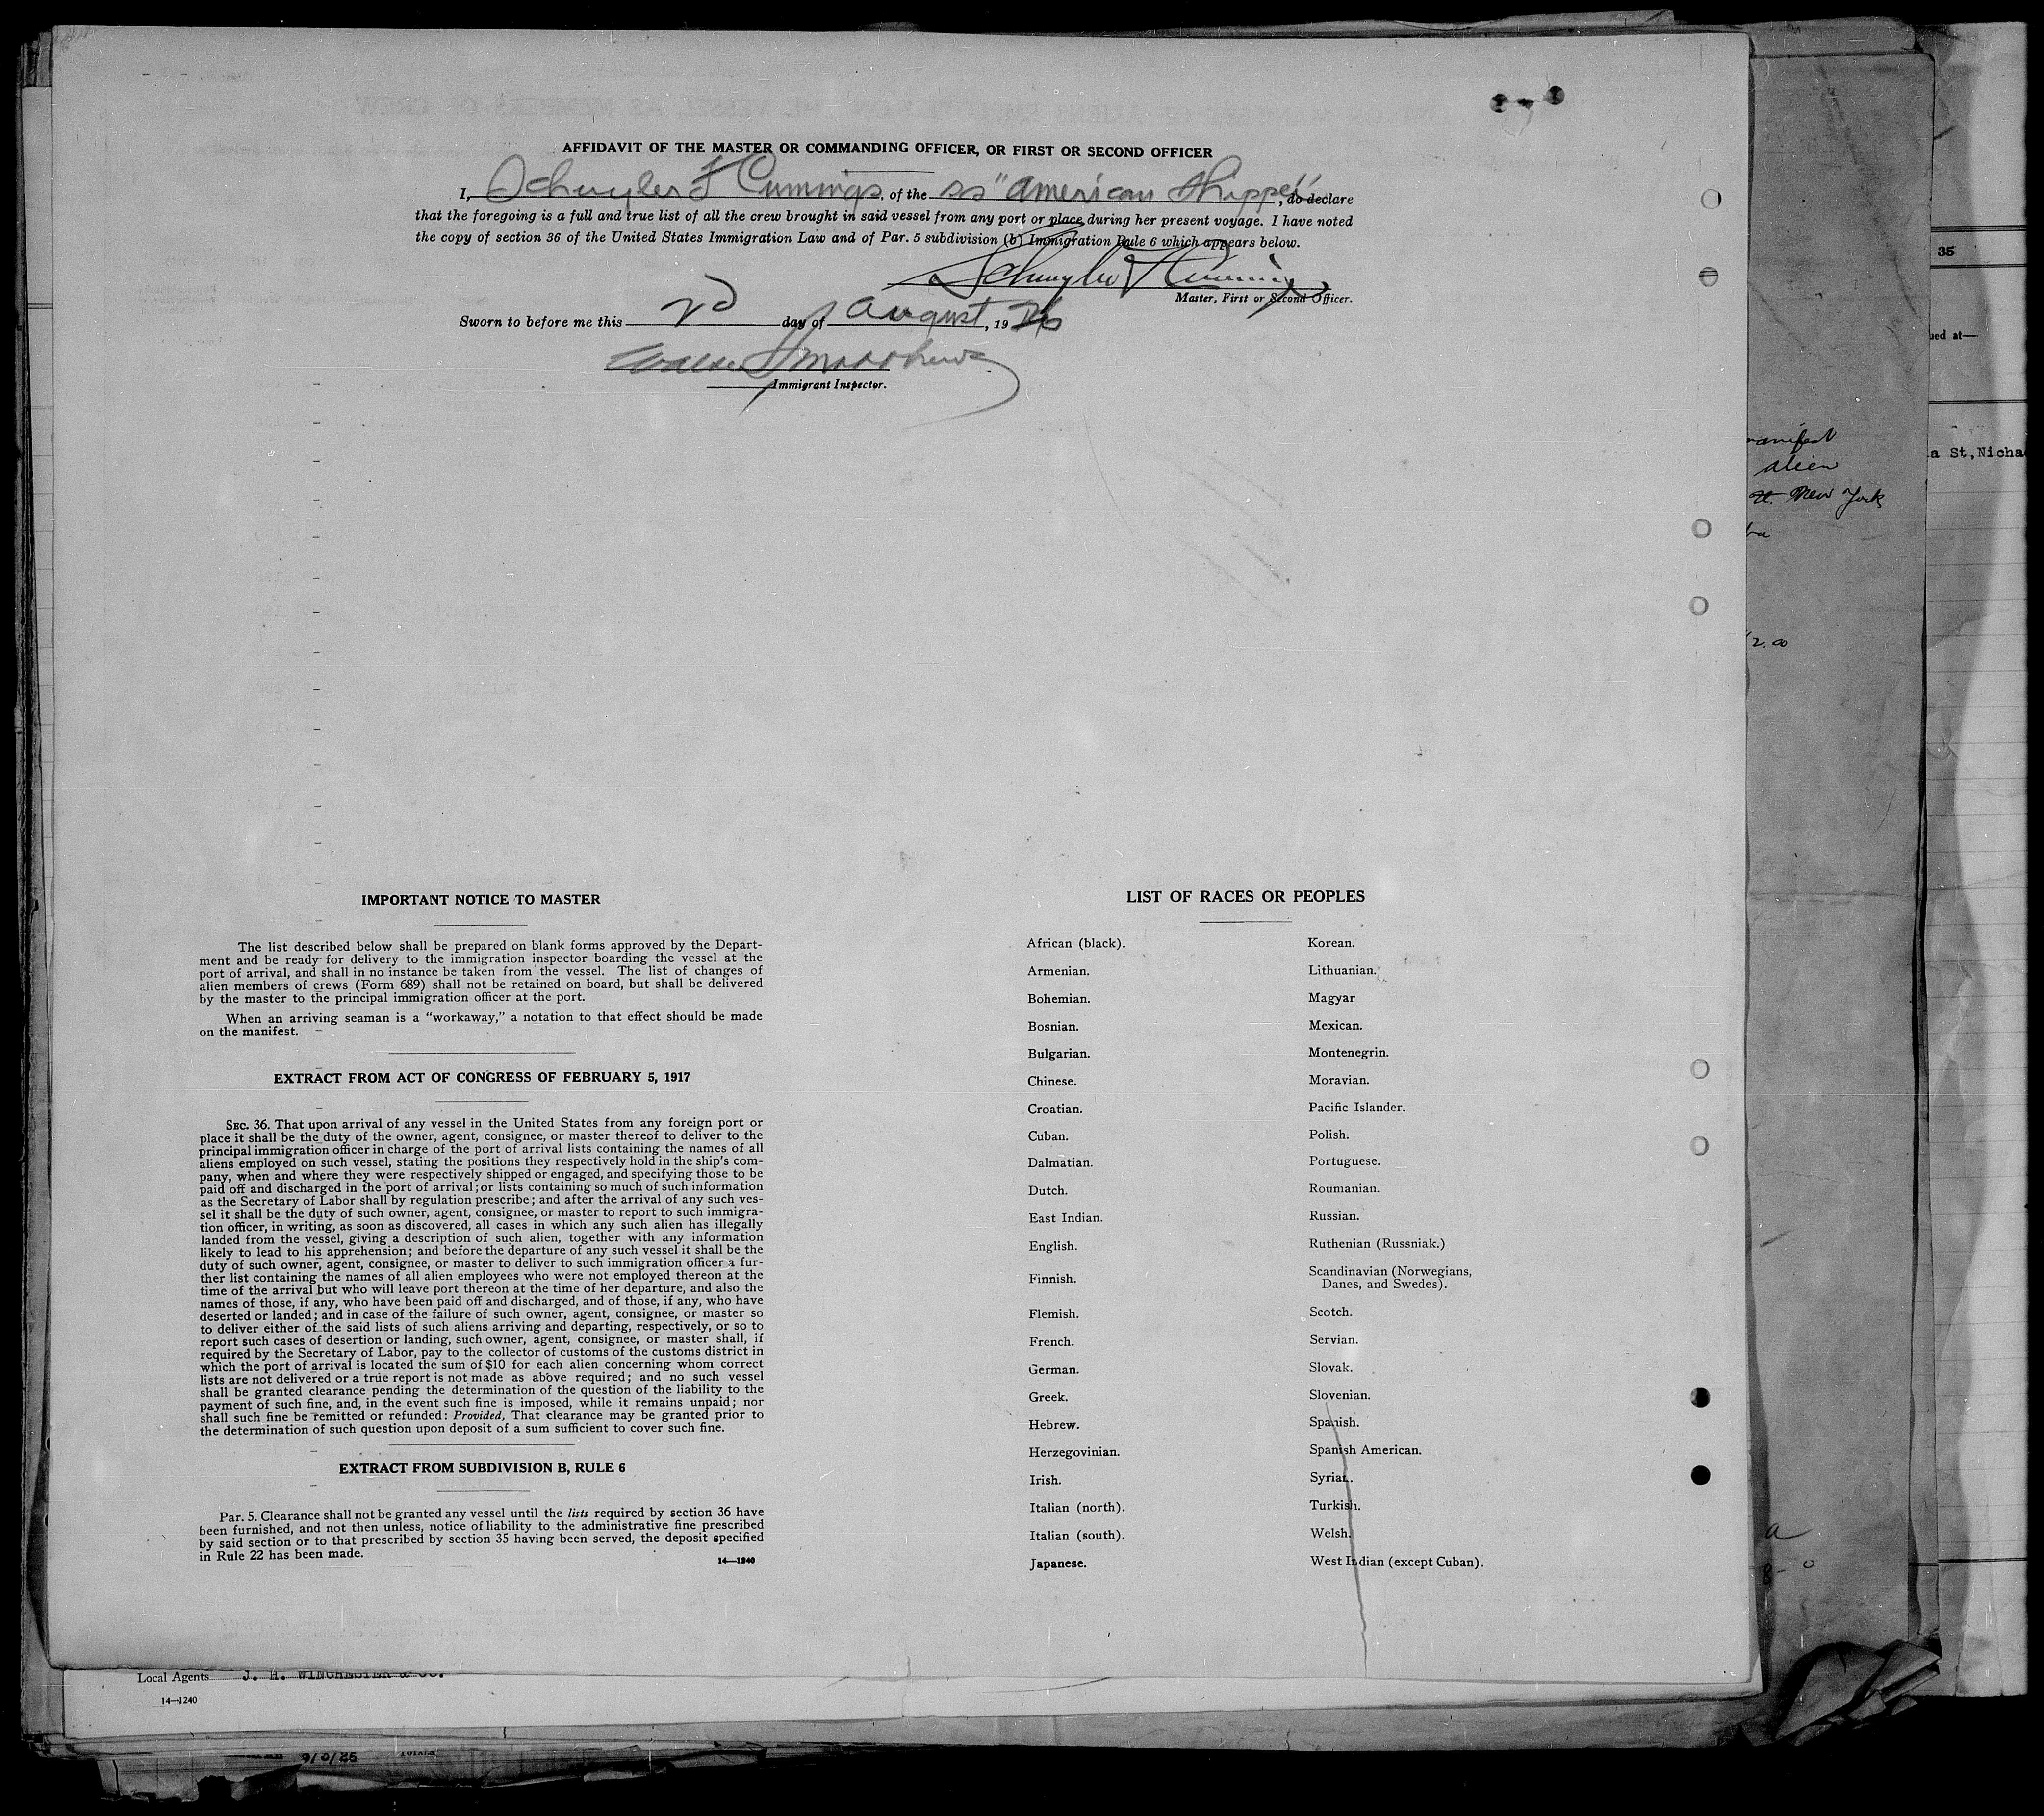 AFFIDAVIT OF THE MASTER OR COMMANDING OFFICER, OR FIRST OR SECOND OFFICER
I, Schuyler F Cummings, of the ss "American Shipper", do declare
that the foregoing is a full and true list of all the crew brought in said vessel from any port or place during her present voyage. I have noted
the copy of section 36 of the United States Immigration Law and of Par. 5 subdivision (b) Immigration Rule 6 which appears below.
Schuyler F Cummings
Master, First or Second Officer.
Sworn to before me this 2d day of August, 1926
Matthews
Immigrant Inspector.
IMPORTANT NOTICE TO MASTER
The list described below shall be prepared on blank forms approved by the Depart-
ment and be ready for delivery to the immigration inspector boarding the vessel at the
port of arrival, and shall in no instance be taken from the vessel. The list of changes of
alien members of crews (Form 689) shall not be retained on board, but shall be delivered
by the master to the principal immigration officer at the port.
When an arriving seaman is a "workaway," a notation to that effect should be made
on the manifest.
EXTRACT FROM ACT OF CONGRESS OF FEBRUARY 5, 1917
SEC. 36. That upon arrival of any vessel in the United States from any foreign port or
place it shall be the duty of the owner, agent, consignee, or master thereof to deliver to the
principal immigration officer in charge of the port of arrival lists containing the names of all
aliens employed on such vessel, stating the positions they respectively hold in the ship's com-
pany, when and where they were respectively shipped or engaged, and specifying those to be
paid off and discharged in the port of arrival; or lists containing so much of such information
as the Secretary of Labor shall by regulation prescribe; and after the arrival of any such ves-
sel it shall be the duty of such owner, agent, consignee, or master to report to such immigra-
tion officer, in writing, as soon as discovered, all cases in which any such alien has illegally
landed from the vessel, giving a description of such alien, together with any information
likely to lead to his apprehension; and before the departure of any such vessel it shall be the
duty of such owner, agent, consignee, or master to deliver to such immigration officer a fur-
ther list containing the names of all alien employees who were not employed thereon at the
time of the arrival but who will leave port thereon at the time of her departure, and also the
names of those, if any, who have been paid off and discharged, and of those, if any, who have
deserted or landed; and in case of the failure of such owner, agent, consignee, or master so
to deliver either of the said lists of such aliens arriving and departing, respectively, or so to
report such cases of desertion or landing, such owner, agent, consignee, or master shall, if
required by the Secretary of Labor, pay to the collector of customs of the customs district in
which the port of arrival is located the sum of $10 for each alien concerning whom correct
lists are not delivered or a true report is not made as above required; and no such vessel
shall be granted clearance pending the determination of the question of the liability to the
payment of such fine, and, in the event such fine is imposed, while it remains unpaid; nor
shall such fine be remitted or refunded: Provided, That clearance may be granted prior to
the determination of such question upon deposit of a sum sufficient to cover such fine.
EXTRACT FROM SUBDIVISION B, RULE 6
Par. 5. Clearance shall not be granted any vessel until the lists required by section 36 have
been furnished, and not then unless, notice of liability to the administrative fine prescribed
by said section or to that prescribed by section 35 having been served, the deposit specified
in Rule 22 has been made.
14—1240
LIST OF RACES OR PEOPLES
African (black).
Armenian.
Bohemian.
Bosnian.
Bulgarian.
Chinese.
Croatian.
Cuban.
Dalmatian.
Dutch.
East Indian.
English.
Finnish.
Flemish.
French.
German.
Greek.
Hebrew.
Herzegovinian.
Irish.
Italian (north).
Italian (south).
Japanese.
Korean.
Lithuanian.
Magyar
Mexican.
Montenegrin.
Moravian.
Pacific Islander.
Polish.
Portuguese.
Roumanian.
Russian.
Ruthenian (Russniak.)
Scandinavian (Norwegians,
Danes, and Swedes).
Scotch.
Servian.
Slovak.
Slovenian.
Spanish.
Spanish American.
Syrian.
Turkish.
Welsh.
West Indian (except Cuban).
35
ued at—
manifest
alien
New York
a St, Nicha
2.00
Local Agents J. H. WINCHESTER & CO.
14—1240